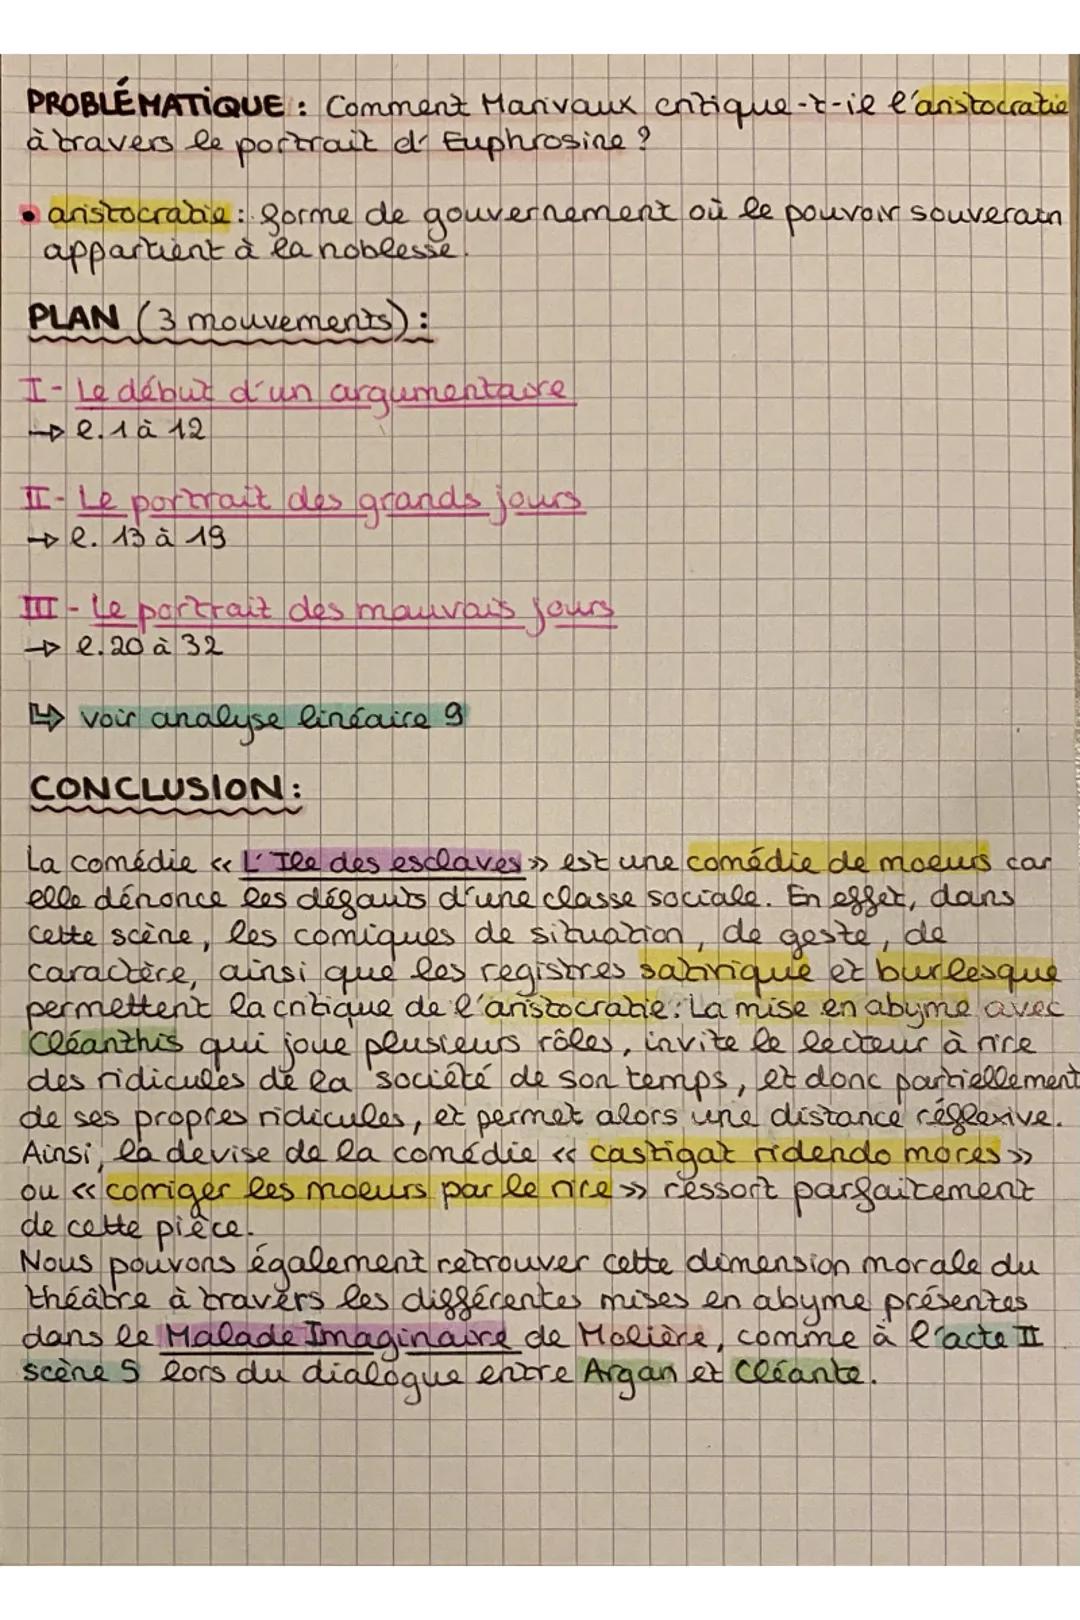 PROBLÉMATIQUE : Comment Marivaux critique-t-il l'aristocratie
à travers le portrait d' Euphrosine ?
• aristocratie : forme de gouvernement où le pouvoir souverain
appartient à la noblesse.
PLAN (3 mouvements) :
I - Le début d'un argumentaire
→ l. 1 à 12
II - Le portrait des grands jours
→ l. 13 à 19
III - Le portrait des mauvais jours
→ l. 20 à 32
↳ voir analyse linéaire 9
CONCLUSION :
La comédie « L'Ile des esclaves » est une comédie de moeurs car
elle dénonce les défauts d'une classe sociale. En effet, dans
cette scène, les comiques de situation, de geste, de
caractère, ainsi que les registres satirique et burlesque
permettent la critique de l'aristocratie. La mise en abyme avec
Cléanthis qui joue plusieurs rôles, invite le lecteur à rire
des ridicules de la société de son temps, et donc partiellement
de ses propres ridicules, et permet alors une distance réflexive.
Ainsi, la devise de la comédie « castigat ridendo mores »
ou « corriger les moeurs par le rire » ressort parfaitement
de cette pièce.
Nous pouvons également retrouver cette dimension morale du
théâtre à travers les différentes mises en abyme présentes
dans le Malade Imaginaire de Molière, comme à l'acte II
scène 5 lors du dialogue entre Argan et Cléante.